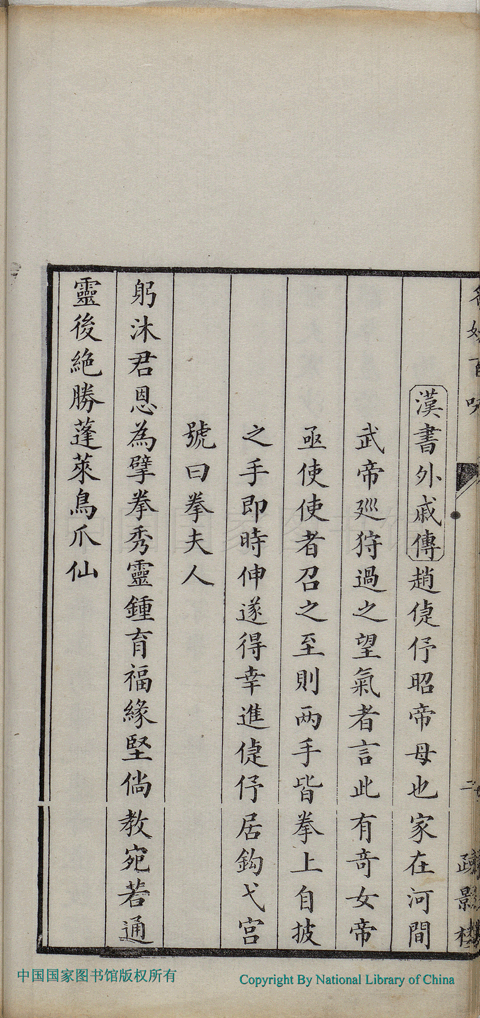 漢書外戚傳趙倢伃昭帝母也家在河間
武帝廵狩過之望氣者言此有奇女帝
亟使使者召之至則两手皆拳上自披
之手即時伸遂得幸進倢伃居鈎弋宮
號曰拳夫人
躬沐君恩為擘拳秀靈鍾育福緣堅倘教宛若通
靈後絶勝蓬萊鳥爪仙
中国国家图书馆版权所有
Copyright By National Library of China